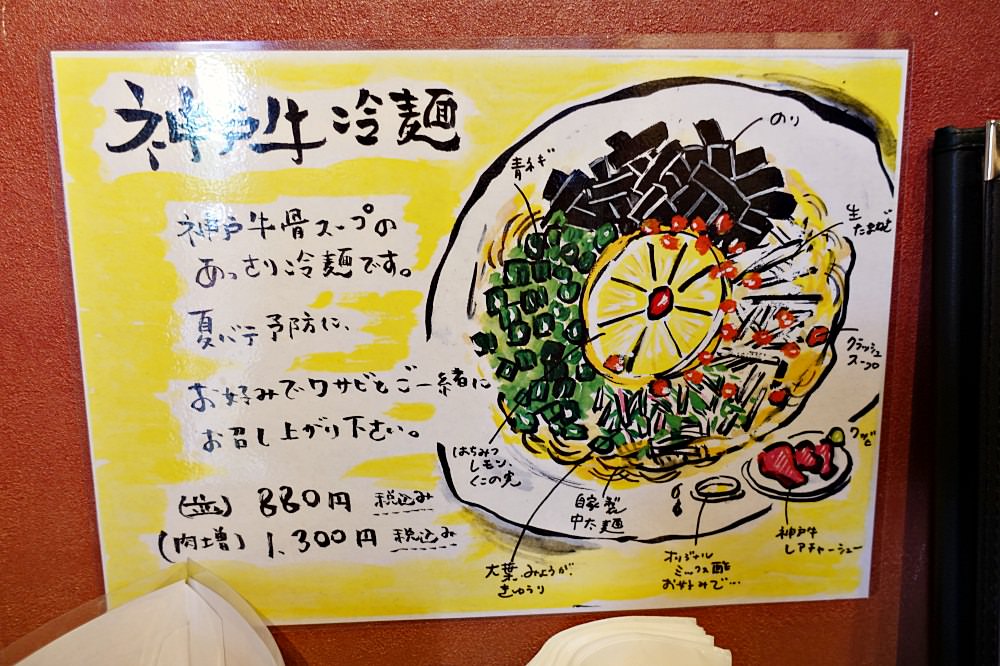 神戸牛冷麺
神戸牛骨スープの
あっさり冷麺です。
夏バテ予防に、
お好みでワサビとご一緒に
お召し上がり下さい。
(並) 880円 税込み
(肉増) 1,300円 税込み
のり
青ネギ
生
たまねぎ
クラッシュ
スープ
ワサビ
はちみつ
レモン、
くこの実
自家製
中太麺
大葉、みょうが、
きゅうり
オリジナル
ミックス酢
お好みで…
神戸牛
レアチャーシュー